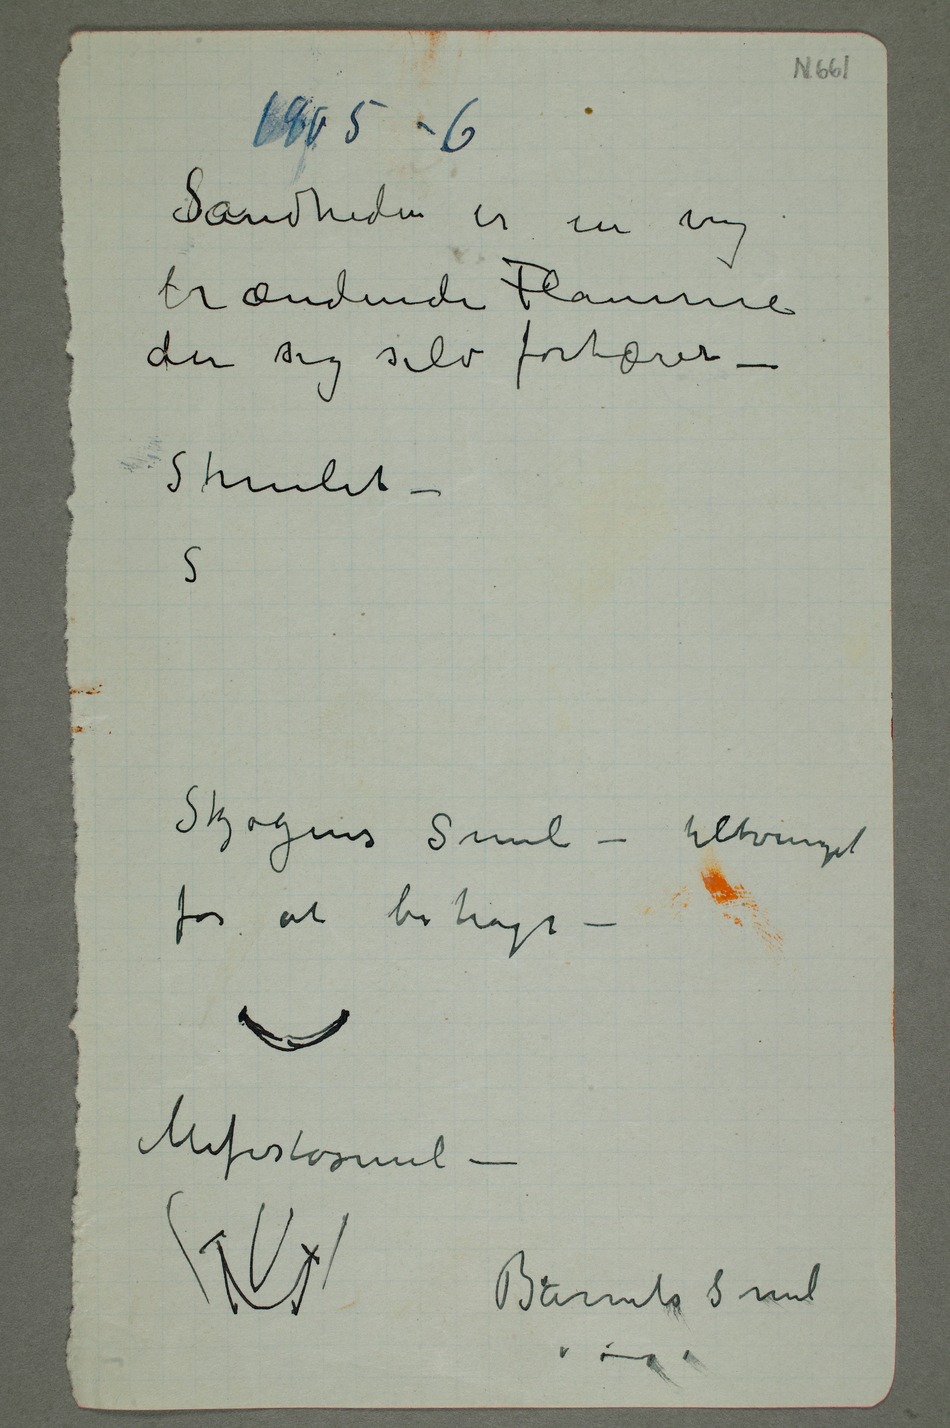 N661
1905 -6
Sandheden er en
brændende Flamme
den sig selv fortærer —
Smilet —
S
Skjøgens Smil — tiltvunget
for at behage —
Mefistosmil —
Barnets Smil